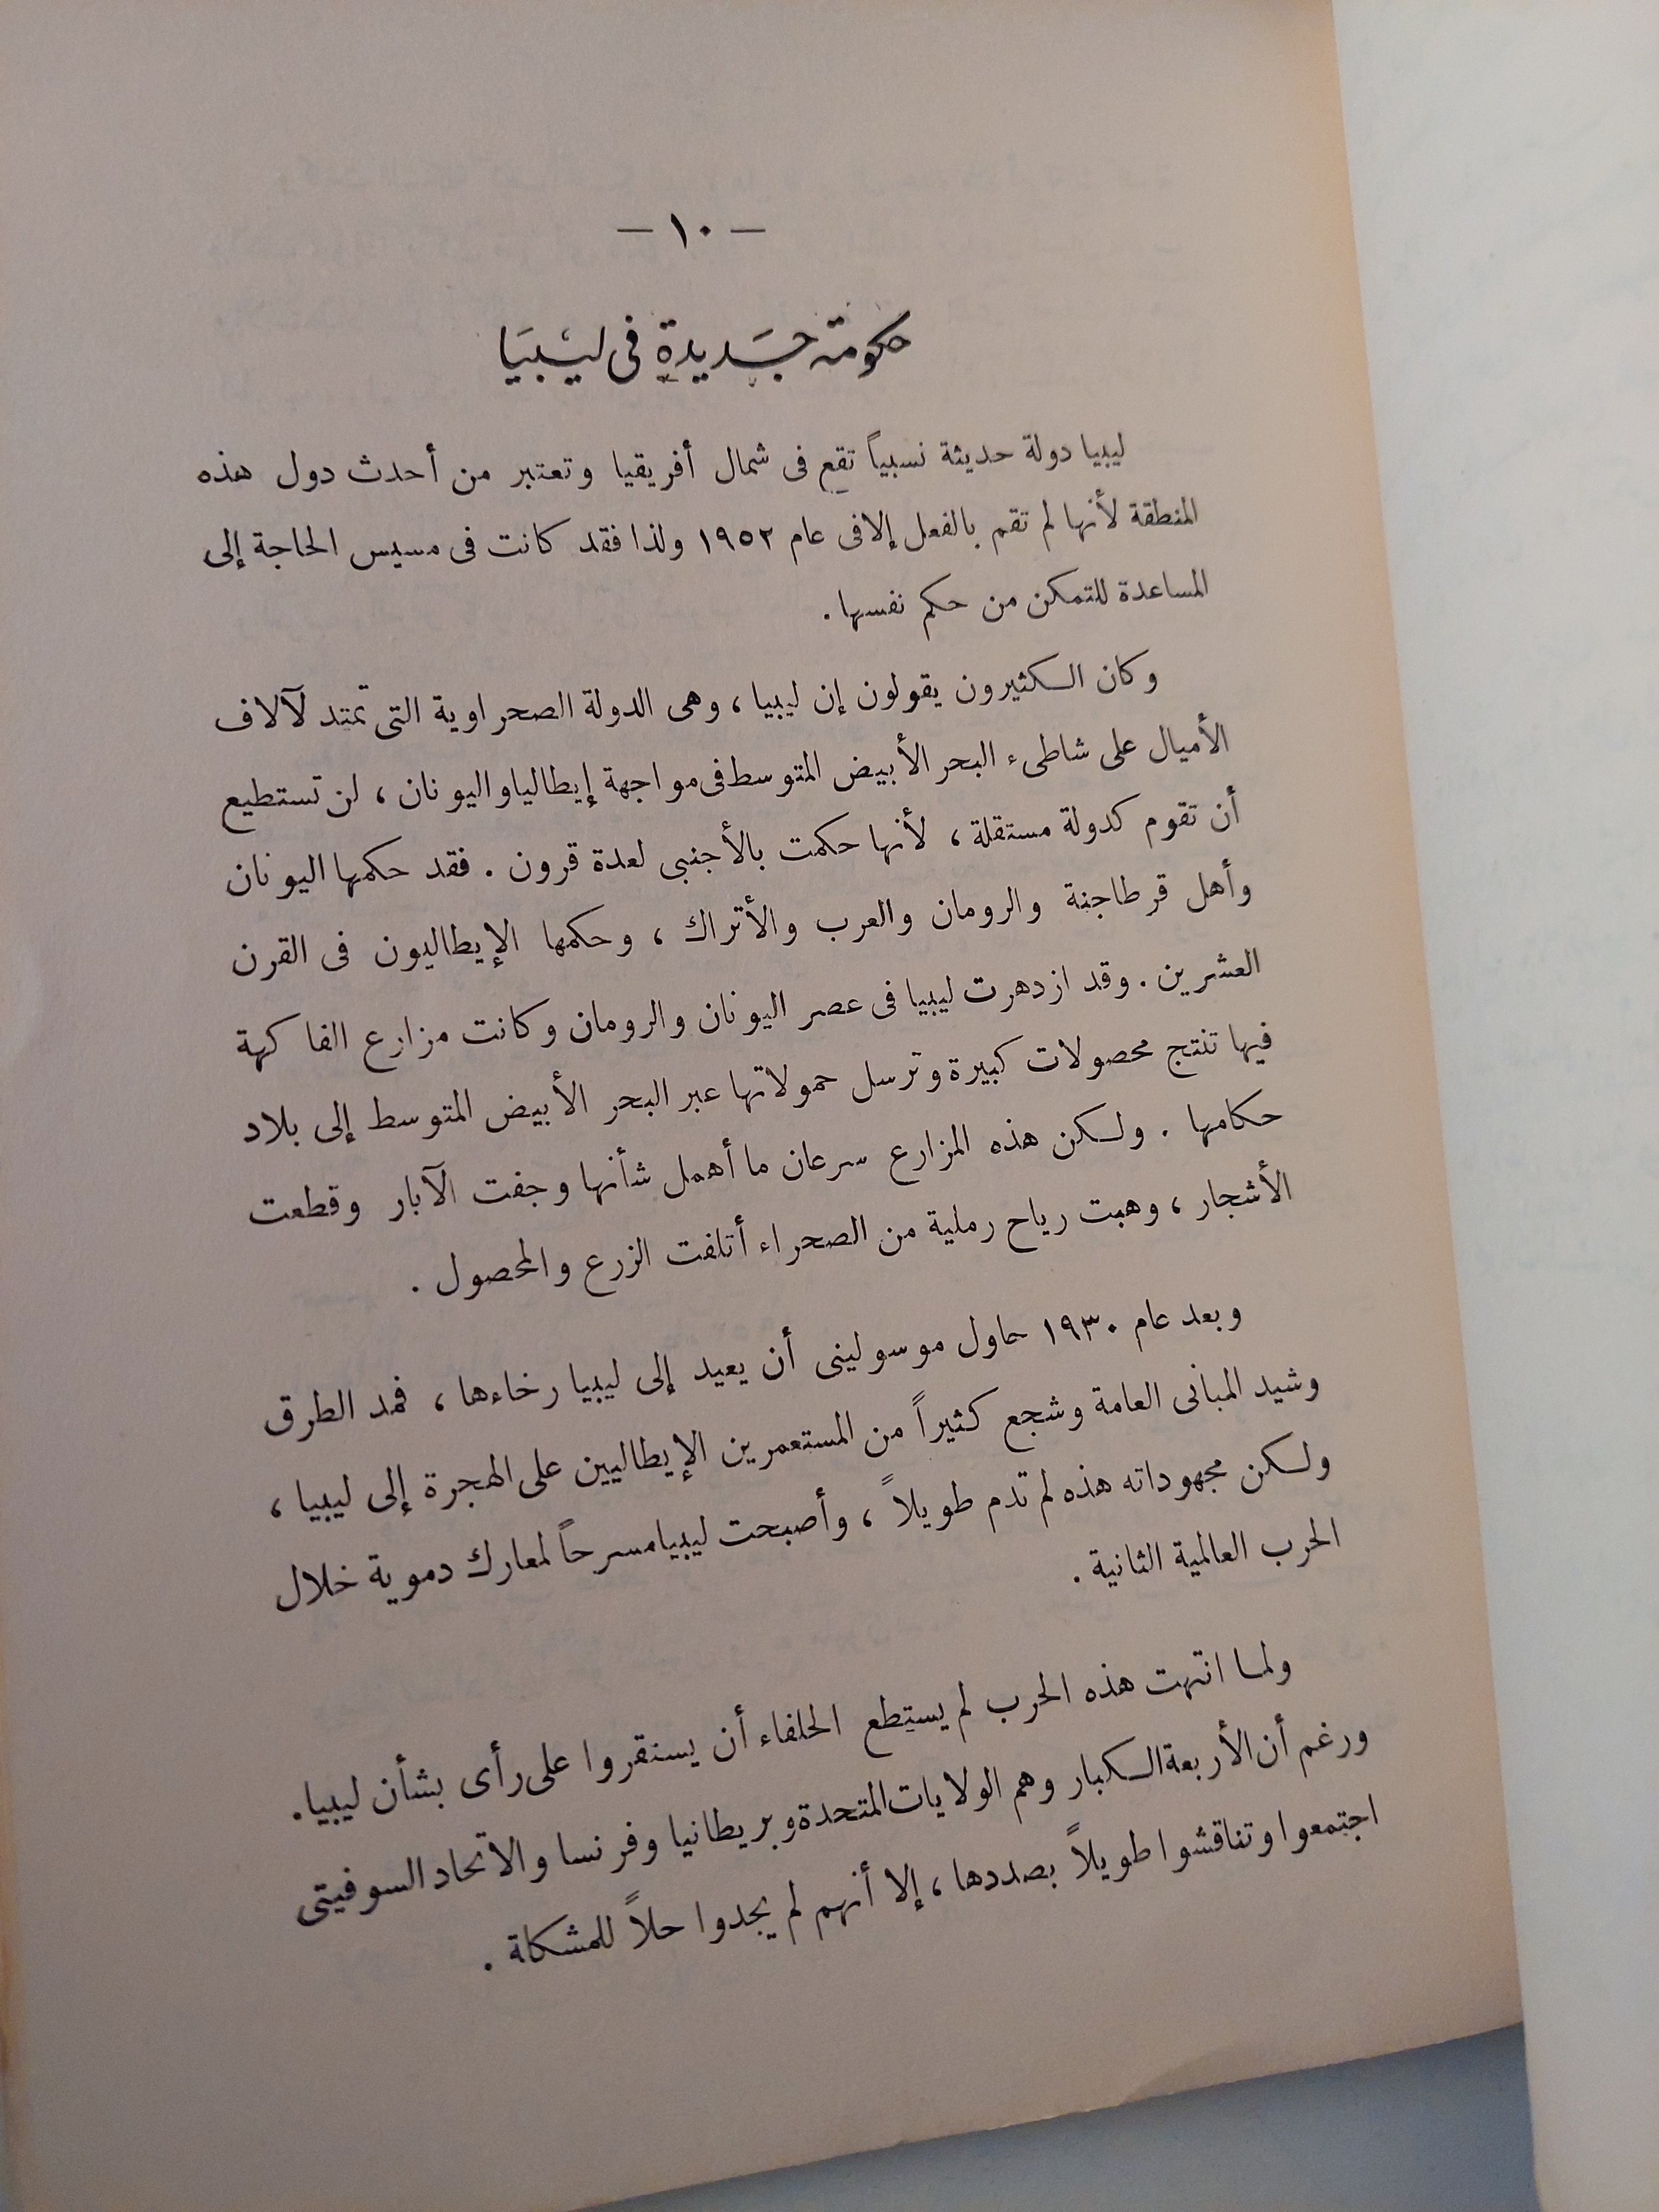 — ١٠ —
حكومة جديدة فى ليبيا
ليبيا دولة حديثة نسبياً تقع فى شمال أفريقيا وتعتبر من أحدث دول هذه
المنطقة لأنها لم تقم بالفعل إلا فى عام ١٩٥٢ ولذا فقد كانت فى مسيس الحاجة إلى
المساعدة للتمكن من حكم نفسها .
وكان الكثيرون يقولون إن ليبيا ، وهى الدولة الصحراوية التى تمتد لآلاف
الأميال على شاطىء البحر الأبيض المتوسط فى مواجهة إيطاليا واليونان ، لن تستطيع
أن تقوم كدولة مستقلة ، لأنها حكمت بالأجنبى لعدة قرون . فقد حكمها اليونان
وأهل قرطاجنة والرومان والعرب والأتراك ، وحكمها الإيطاليون فى القرن
العشرين . وقد ازدهرت ليبيا فى عصر اليونان والرومان وكانت مزارع الفاكهة
فيها تنتج محصولات كبيرة وترسل حمولاتها عبر البحر الأبيض المتوسط إلى بلاد
حكامها . ولكن هذه المزارع سرعان ما أهمل شأنها وجفت الآبار وقطعت
الأشجار ، وهبت رياح رملية من الصحراء أتلفت الزرع والمحصول .
وبعد عام ١٩٣٠ حاول موسولينى أن يعيد إلى ليبيا رخاءها ، فمد الطرق
وشيد المبانى العامة وشجع كثيراً من المستعمرين الإيطاليين على الهجرة إلى ليبيا ،
ولكن مجهوداته هذه لم تدم طويلاً ، وأصبحت ليبيا مسرحاً لمعارك دموية خلال
الحرب العالمية الثانية .
ولما انتهت هذه الحرب لم يستطع الحلفاء أن يستقروا على رأى بشأن ليبيا .
ورغم أن الأربعة الكبار وهم الولايات المتحدة وبريطانيا وفرنسا والاتحاد السوفيتى
اجتمعوا وتناقشوا طويلاً بصددها ، إلا أنهم لم يجدوا حلاً للمشكلة .